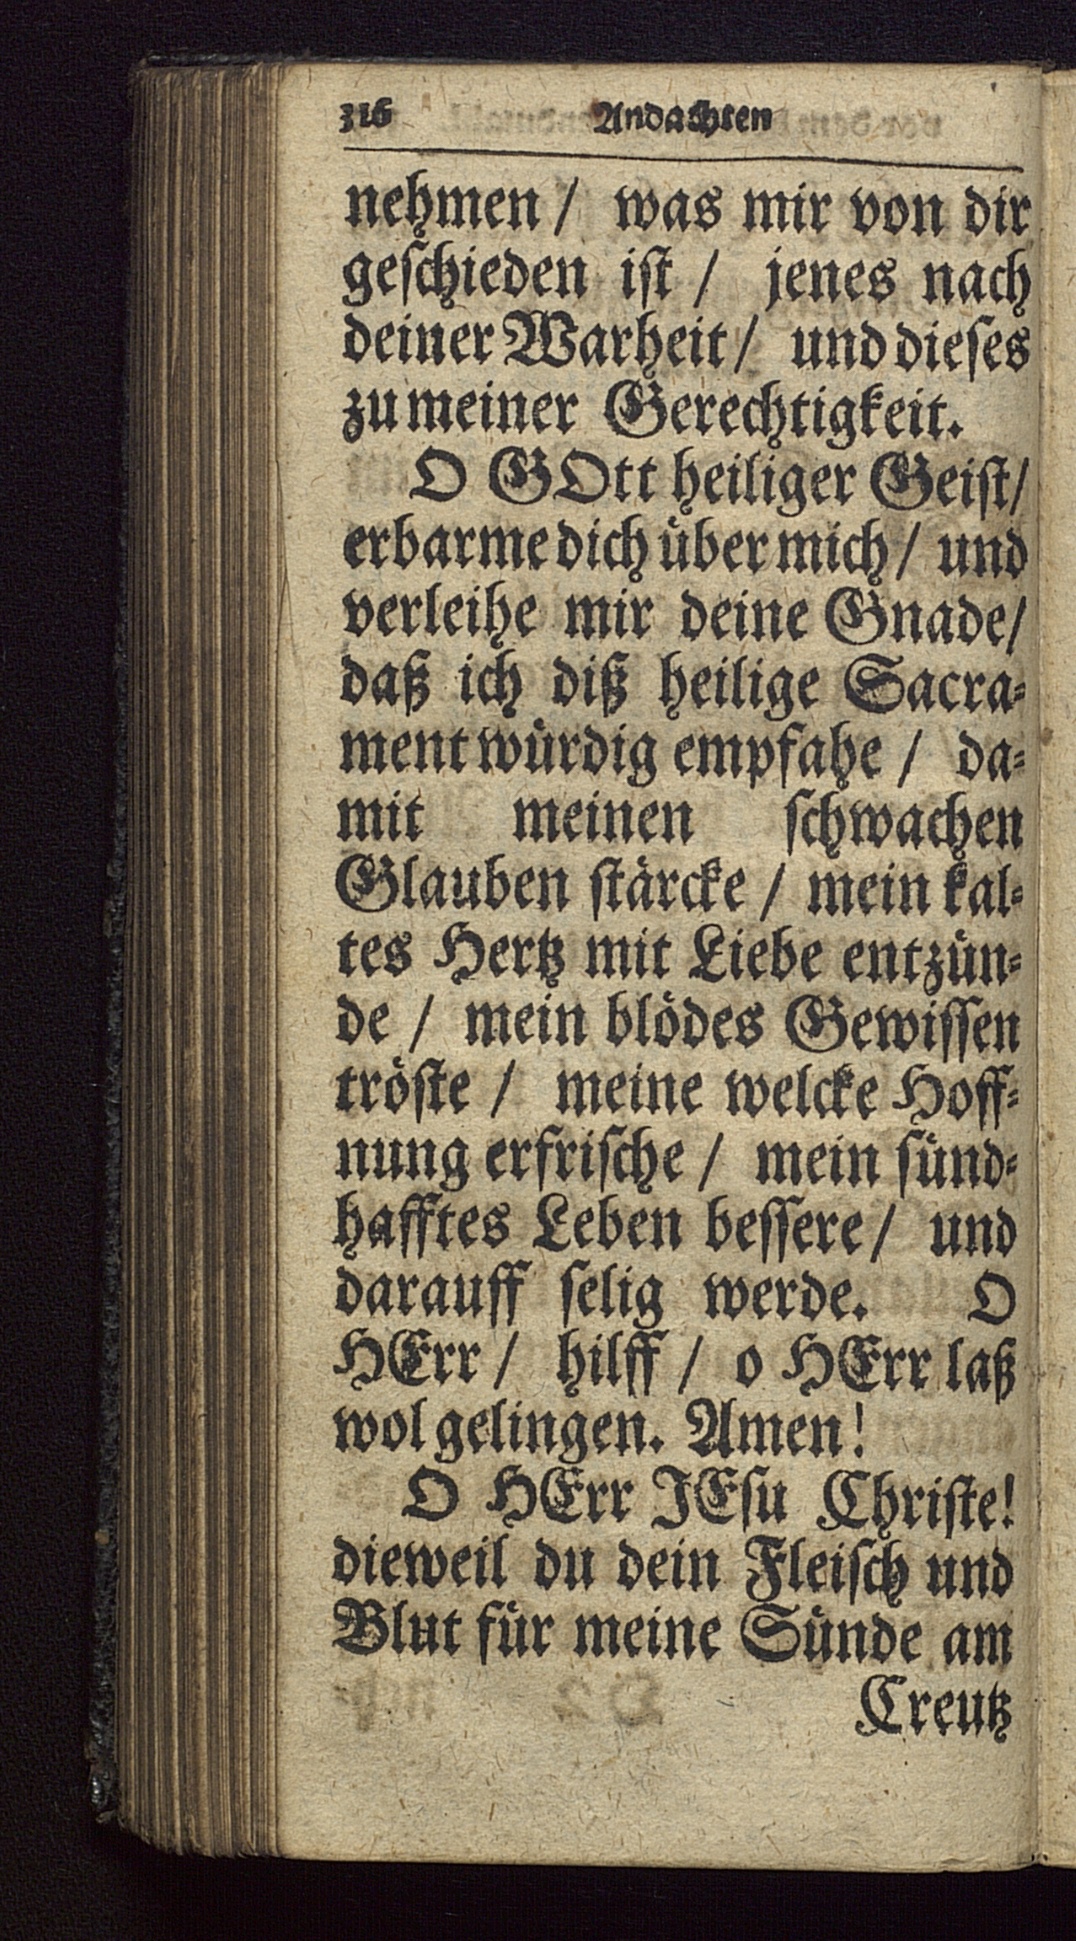 316 Andachten
nehmen / was mir von dir
geſchieden iſt / jenes nach
deiner Warheit / und dieſes
zu meiner Gerechtigkeit.
O GOtt heiliger Geiſt /
erbarme dich uͤber mich / und
verleihe mir deine Gnade /
daß ich diß heilige Sacra⸗
ment wuͤrdig empfahe / da⸗
mit meinen ſchwachen
Glauben ſtaͤrcke / mein kal⸗
tes Hertz mit Liebe entzuͤn⸗
de / mein bloͤdes Gewiſſen
troͤſte / meine welcke Hoff⸗
nung erfriſche / mein ſuͤnd⸗
hafftes Leben beſſere / und
darauff ſelig werde. O
HErr / hilff / o HErr laß
wol gelingen. Amen!
O HErr JEſu Chriſte!
dieweil du dein Fleiſch und
Blut fuͤr meine Suͤnde am
Creutz